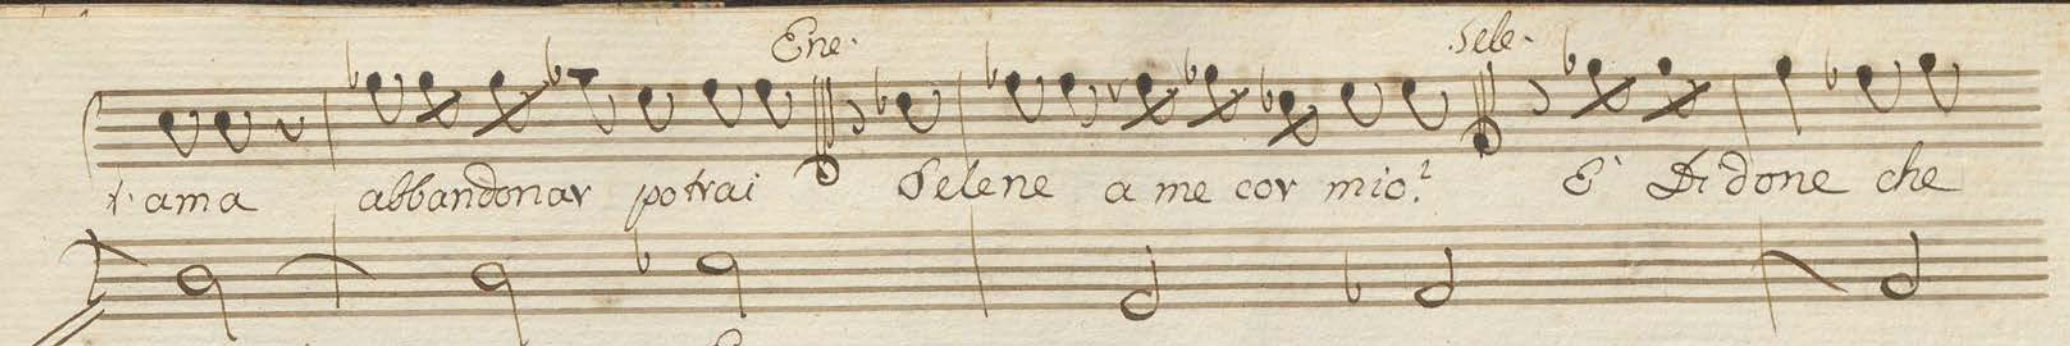 Ene. Sele.
t'ama abbandonar potrai Selene a me cor mio? E' Didone che